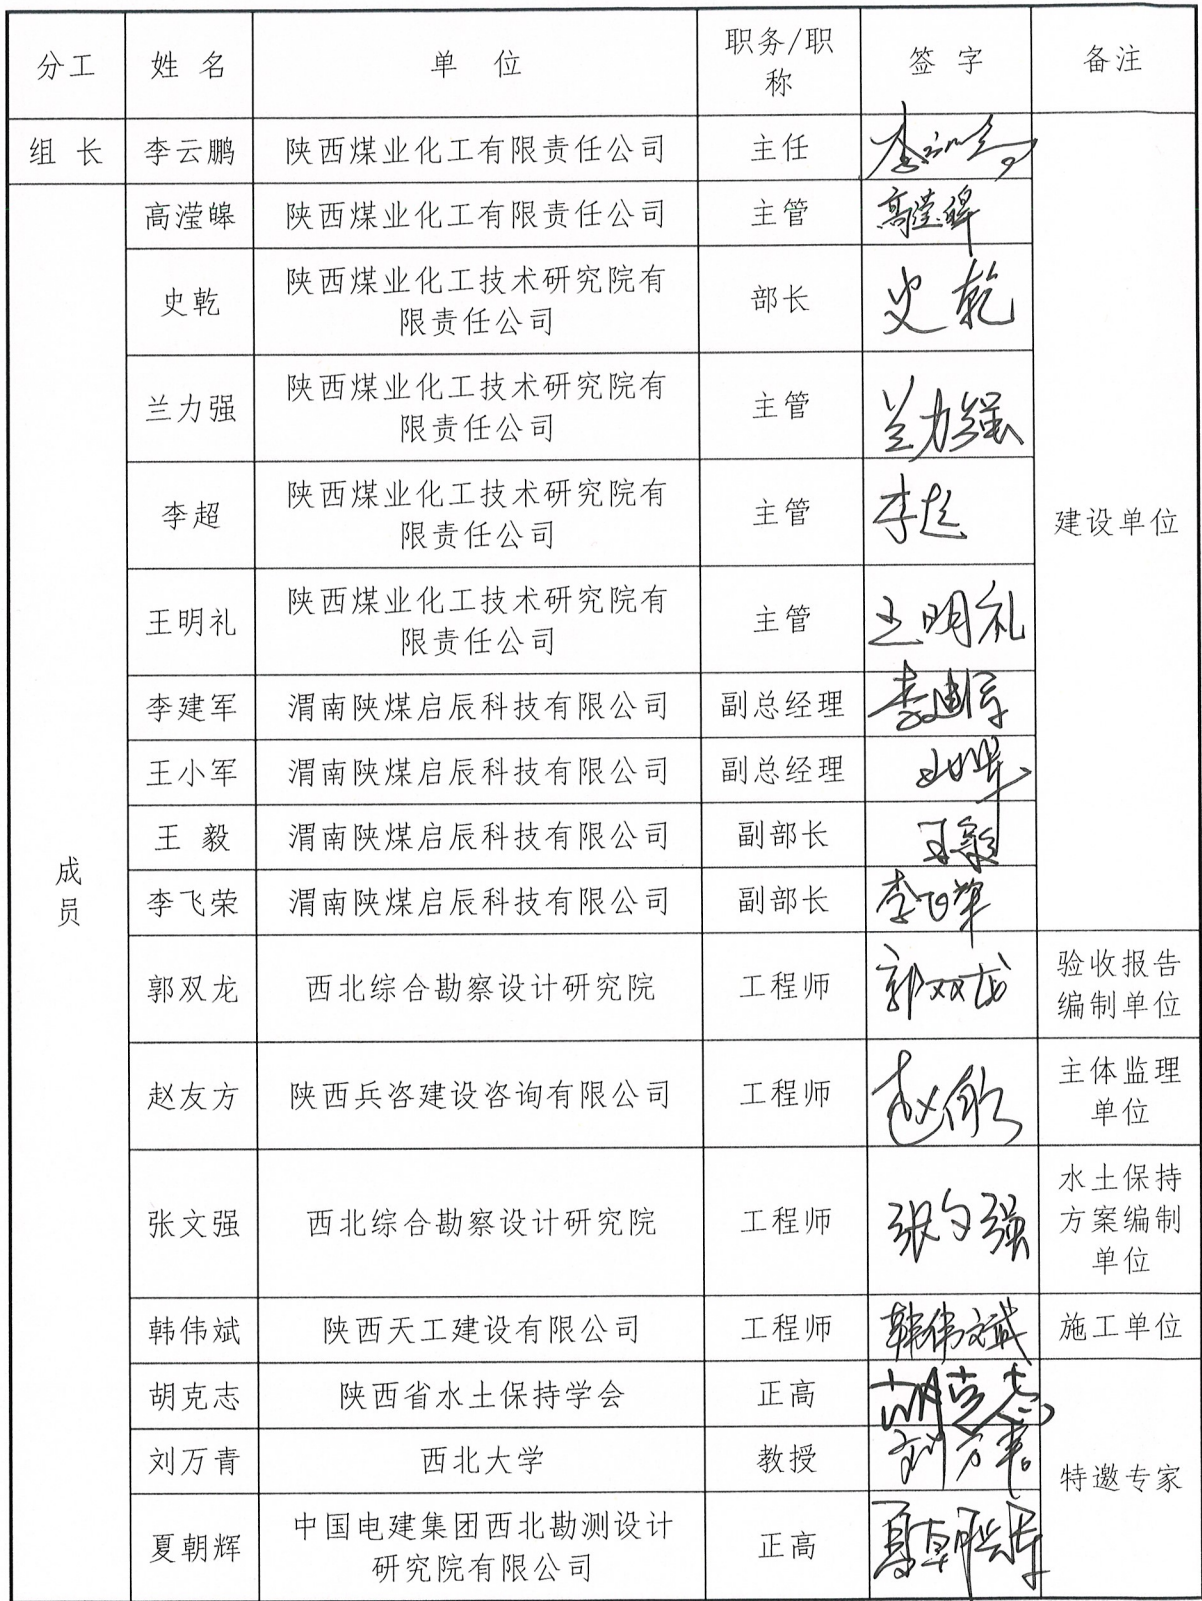 分工 姓 名 单 位 职务/职称 签 字 备注
组 长 李云鹏 陕西煤业化工有限责任公司 主任 李云鹏
成员
高滢皞 陕西煤业化工有限责任公司 主管 高滢皞
史乾 陕西煤业化工技术研究院有限责任公司 部长 史乾
兰力强 陕西煤业化工技术研究院有限责任公司 主管 兰力强
李超 陕西煤业化工技术研究院有限责任公司 主管 李超 建设单位
王明礼 陕西煤业化工技术研究院有限责任公司 主管 王明礼
李建军 渭南陕煤启辰科技有限公司 副总经理 李建军
王小军 渭南陕煤启辰科技有限公司 副总经理 王小军
王 毅 渭南陕煤启辰科技有限公司 副部长 王毅
李飞荣 渭南陕煤启辰科技有限公司 副部长 李飞荣
郭双龙 西北综合勘察设计研究院 工程师 郭双龙 验收报告编制单位
赵友方 陕西兵咨建设咨询有限公司 工程师 赵友方 主体监理单位
张文强 西北综合勘察设计研究院 工程师 张文强 水土保持方案编制单位
韩伟斌 陕西天工建设有限公司 工程师 韩伟斌 施工单位
胡克志 陕西省水土保持学会 正高 胡克志
刘万青 西北大学 教授 刘万青 特邀专家
夏朝辉 中国电建集团西北勘测设计研究院有限公司 正高 夏朝辉